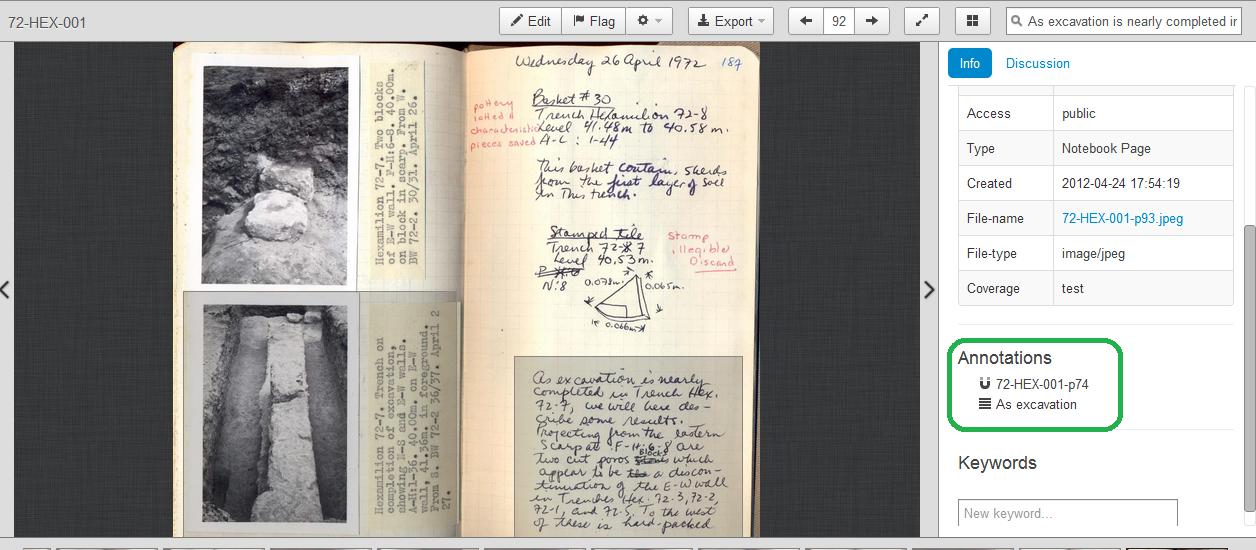 72-HEX-001
Edit
Flag
Export
92
As excavation is nearly completed in
Hexamilion 72-7. Two blocks
of E-W wall. F-H:6-8. 40.00m.
on block in scarp. From W.
BW 72-2. 30/31. April 26.
Hexamilion 72-7. Trench on
completion of excavation,
showing N-S and E-W walls.
A-H:1-36. 40.00m. on E-W
wall, 41.36m. in foreground.
From S. BW 72-2 36/37. April 2
27.
Wednesday 26 April 1972 187
pottery
lotted &
characteristic
pieces saved
Basket # 30
Trench Hexamilion 72-8
Level 41.48m to 40.58m.
A-L : 1-44
This basket contains sherds
from the first layer of soil
in this trench.
Stamped tile
Trench 72-8 7
Level 40.53m.
N:8
0.078m.
0.065m.
0.066m
Stamp
illegible
Discard
As excavation is nearly
completed in Trench Hex.
72-7, we will here des-
cribe some results.
Projecting from the eastern
Scarp at F-H:6-8 are
two cut poros Blocks which
appear to be a discon-
tinuation of the E-W wall
in Trenches Hex. 72-3, 72-2,
72-1, and 72-5. To the west
of these is hard-packed
Info
Discussion
Access public
Type Notebook Page
Created 2012-04-24 17:54:19
File-name 72-HEX-001-p93.jpeg
File-type image/jpeg
Coverage test
Annotations
72-HEX-001-p74
As excavation
Keywords
New keyword...